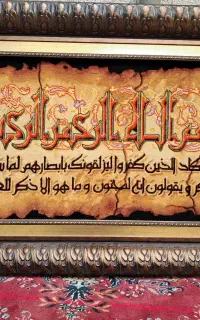 بسم الله الرحمن الرحيم
يكاد الذين كفروا ليزلقونك بابصارهم لما
و يقولون إنه لمجنون و ما هو الا ذكر للع